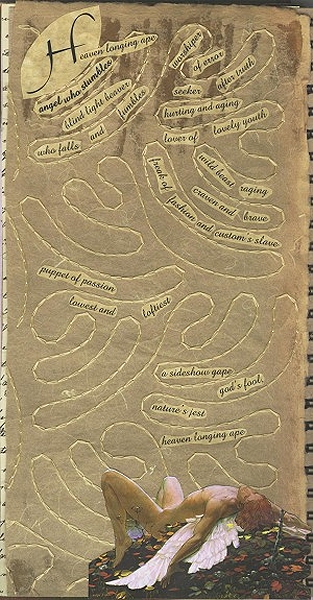 Heaven longing ape
angel who stumbles
blind light beaver
who falls and fumbles
worshiper of error
seeker after truth
hurting and aging
lover of lovely youth
wild beast raging
craven and brave
freak of fashion and custom's slave
puppet of passion
lowest and loftiest
a sideshow gape
god's fool,
nature's jest
heaven longing ape